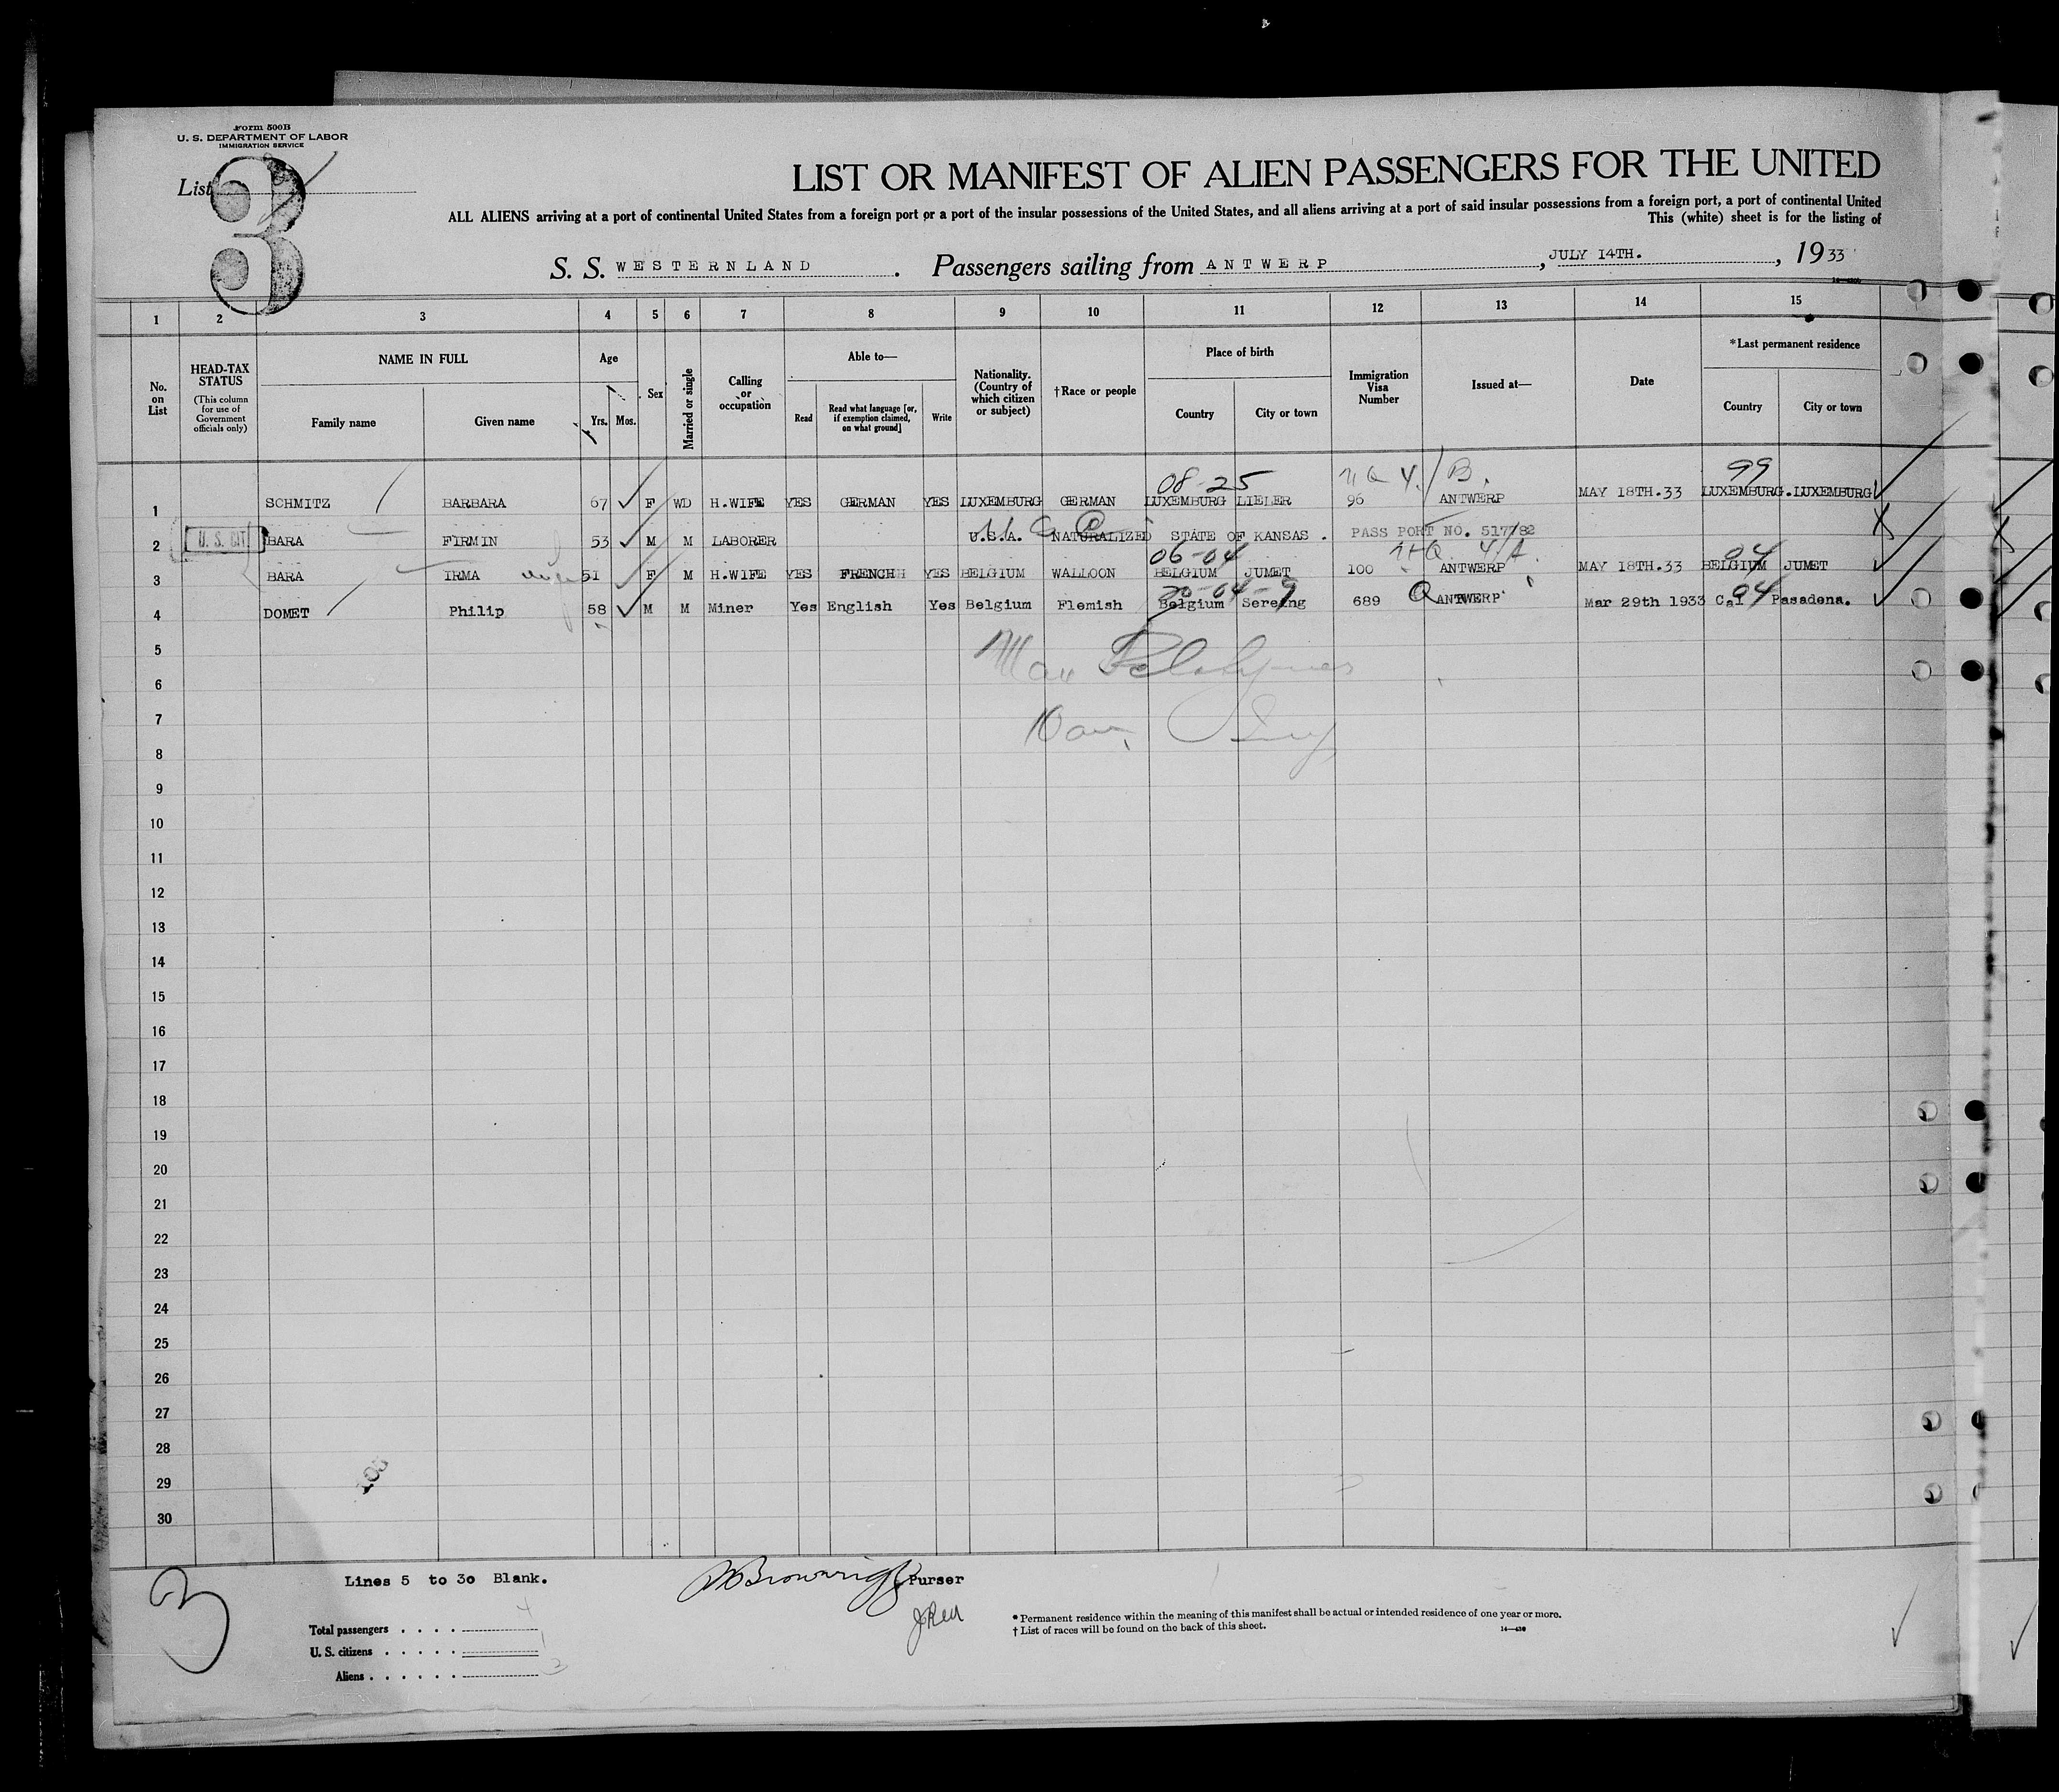 Form 500B
U. S. DEPARTMENT OF LABOR
IMMIGRATION SERVICE
List
3
LIST OR MANIFEST OF ALIEN PASSENGERS FOR THE UNITED
ALL ALIENS arriving at a port of continental United States from a foreign port or a port of the insular possessions of the United States, and all aliens arriving at a port of said insular possessions from a foreign port, a port of continental United
This (white) sheet is for the listing of
S. S. WESTERNLAND . Passengers sailing from ANTWERP , JULY 14TH. , 19 33
1 2 3 4 5 6 7 8 9 10 11 12 13 14 15
No. on List
HEAD-TAX STATUS (This column for use of Government officials only)
NAME IN FULL Family name Given name
Age Yrs. Mos.
Sex
Married or single
Calling or occupation
Able to— Read Read what language [or, if exemption claimed, on what ground] Write
Nationality. (Country of which citizen or subject)
†Race or people
Place of birth Country City or town
Immigration Visa Number
Issued at—
Date
*Last permanent residence Country City or town
08-25 B. 99
1 SCHMITZ BARBARA 67 F WD H.WIFE YES GERMAN YES LUXEMBURG GERMAN LUXEMBURG LIELER 96 ANTWERP MAY 18TH.33 LUXEMBURG.LUXEMBURG
2 U. S. CIT BARA FIRMIN 53 M M LABORER U.S.A. NATURALIZED STATE OF KANSAS . PASS PORT NO. 517782
06-04 04
3 BARA IRMA 51 F M H.WIFE YES FRENCH YES BELGIUM WALLOON BELGIUM JUMET 100 ANTWERP MAY 18TH.33 BELGIUM JUMET
04
4 DOMET Philip 58 M M Miner Yes English Yes Belgium Flemish Belgium Sereing 689 ANTWERP Mar 29th 1933 Cal Pasadena.
5
6
7
8
9
10
11
12
13
14
15
16
17
18
19
20
21
22
23
24
25
26
27
28
29
30
3
Lines 5 to 30 Blank.
Purser
Total passengers . . . . 4
U. S. citizens . . . . . 1
Aliens . . . . . . 3
* Permanent residence within the meaning of this manifest shall be actual or intended residence of one year or more.
† List of races will be found on the back of this sheet.